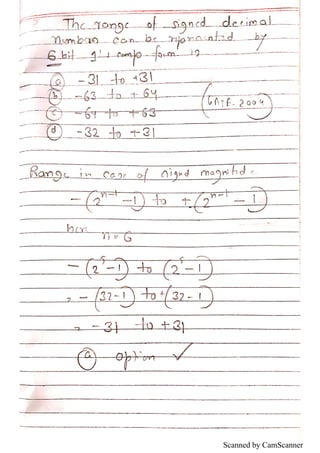 The range of signed decimal
numbers can be represented by
6 bit 1's comp. form is
(a) - 31 to +31
(b) - 63 to + 64
(c) - 64 to + 63
(d) - 32 to + 31
GATE. 2004
Range in case of signed magnitude
- (2^{n-1} - 1) to + (2^{n-1} - 1)
here n = 6
- (2^5 - 1) to (2^5 - 1)
= - (32-1) to +(32-1)
= - 31 to +31
(a) option ✓
Scanned by CamScanner